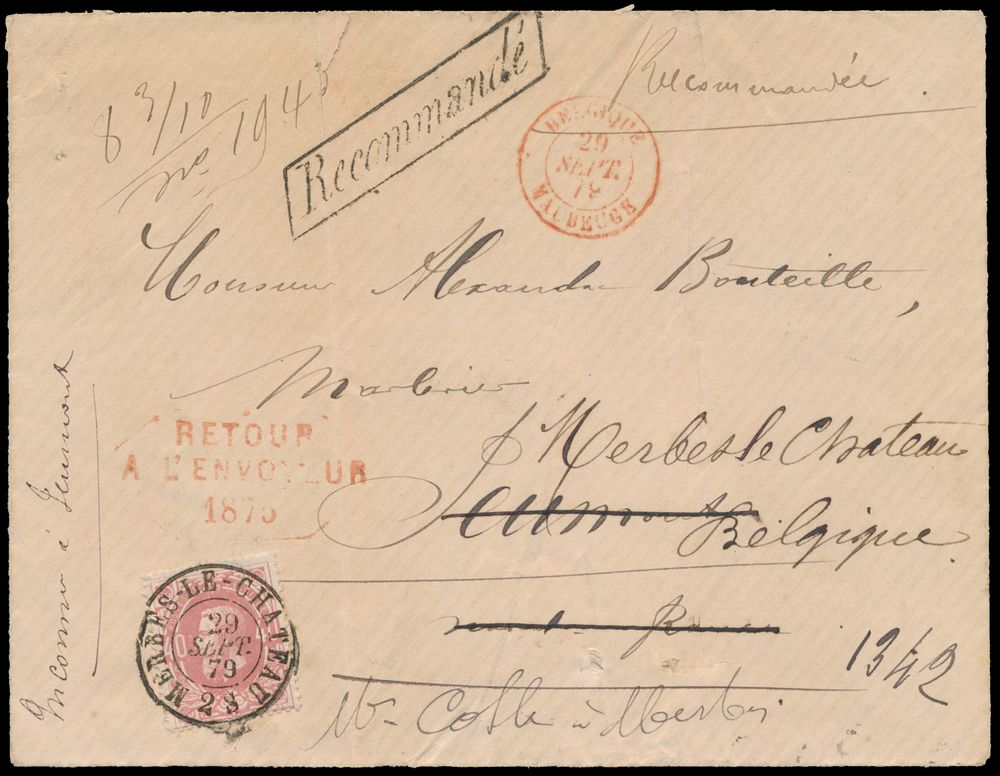 8 3/10
no 194
Recommandé
BELGIQUE
29
SEPT.
79
MAUBEUGE
Recommandée
Monsieur Alexandre Bouteille,
Marbrier
Merbes le Chateau
Jeumont
Belgique
RETOUR
A L'ENVOYEUR
1875
Inconnu à Jeumont
MERBES-LE-CHATEAU
29
SEPT.
79
2 S
1342
à Merbes